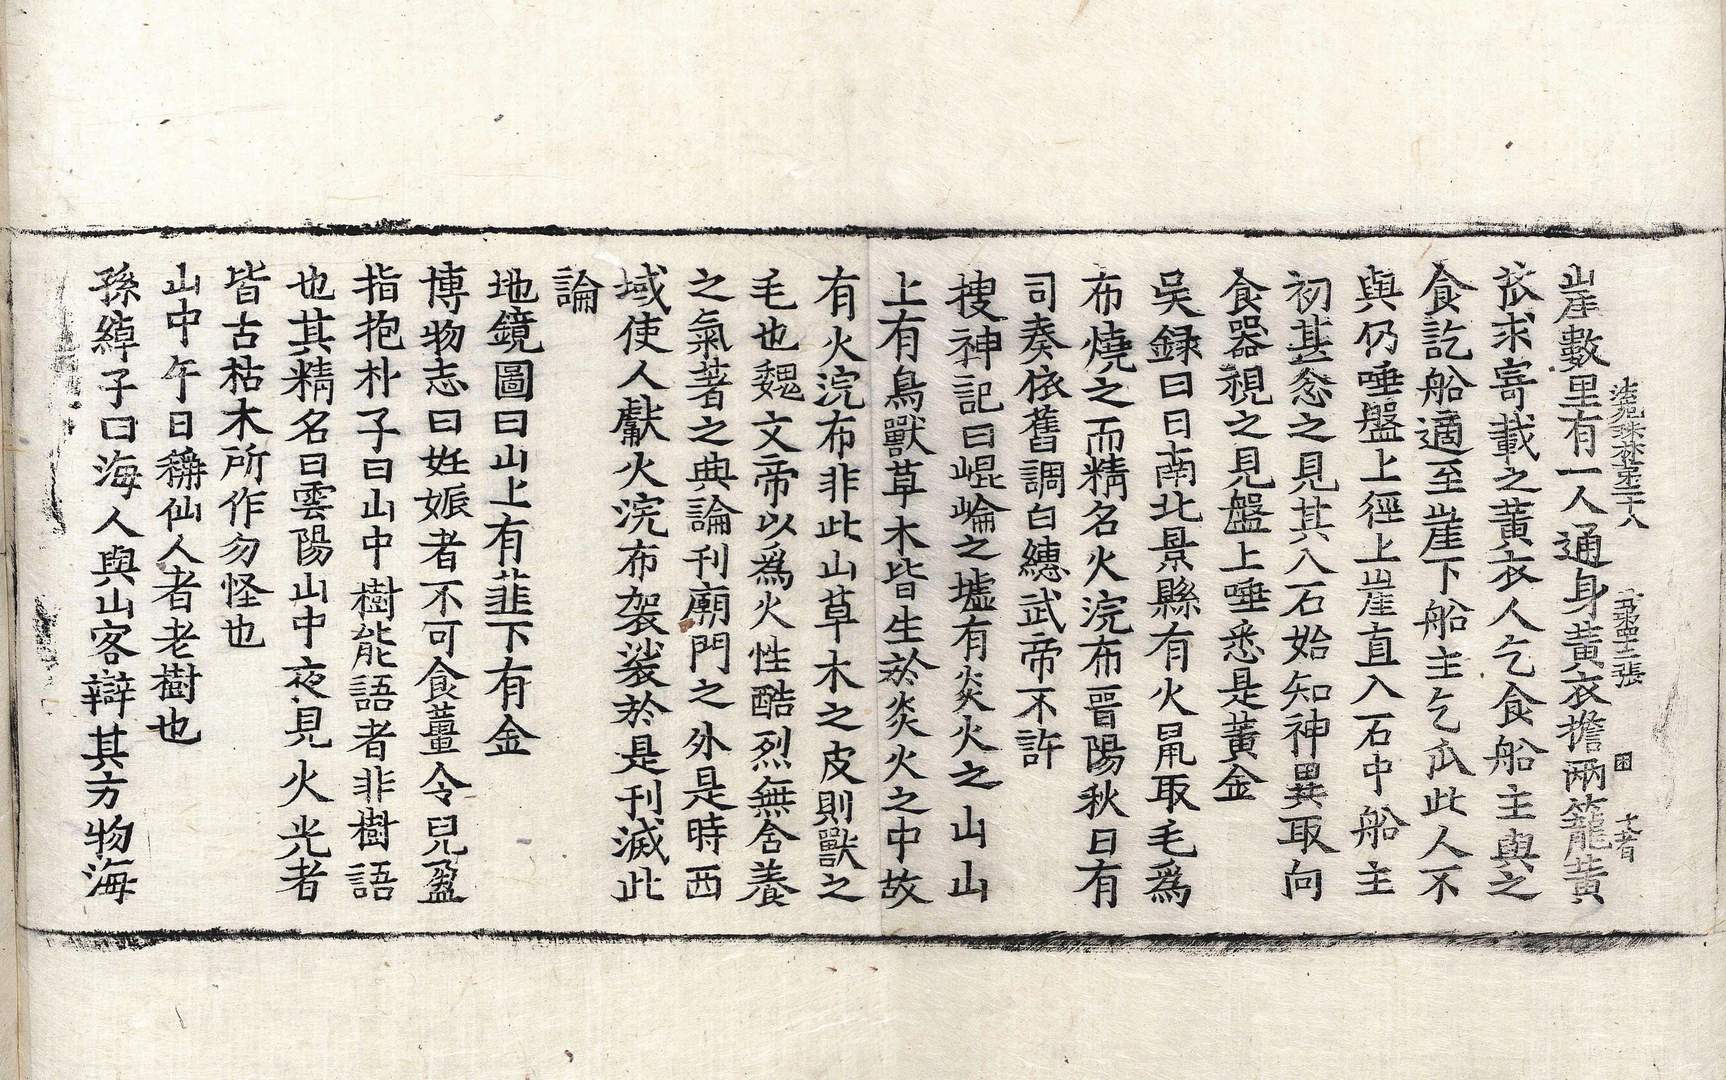 山崖數里有一人通身黃衣擔兩籠黃
法苑珠林第二十八　第四二張　困
苽求寄載之黃衣人乞食船主與之
食訖船適至崖下船主乞瓜此人不
與仍唾盤上徑上崖直入石中船主
初甚忿之見其入石始知神異取向
食器視之見盤上唾悉是黃金
吳録曰日南北景縣有火鼠取毛爲
布燒之而精名火浣布晉陽秋日有
司奏依舊調白䌈武帝不許
搜神記曰崐崘之墟有炎火之山山
上有鳥獸草木皆生於炎火之中故
有火浣布非此山草木之皮則獸之
毛也魏文帝以爲火性酷烈無含養
之氣著之典論刊廟門之外是時西
域使人獻火浣布袈裟於是刊滅此
論
地鏡圖曰山上有韮下有金
博物志曰妊娠者不可食薑令兒盈
指抱朴子曰山中樹能語者非樹語
也其精名曰雲陽山中夜見火光者
皆古枯木所作勿怪也
山中午日稱仙人者老樹也
孫綽子曰海人與山客辯其方物海